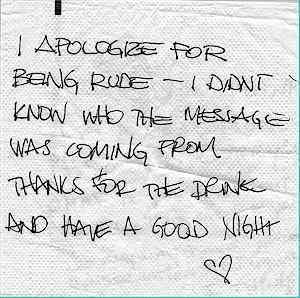 I APOLOGIZE FOR
BEING RUDE – I DIDNT
KNOW WHO THE MESSAGE
WAS COMING FROM
THANKS FOR THE DRINK
AND HAVE A GOOD NIGHT
♡